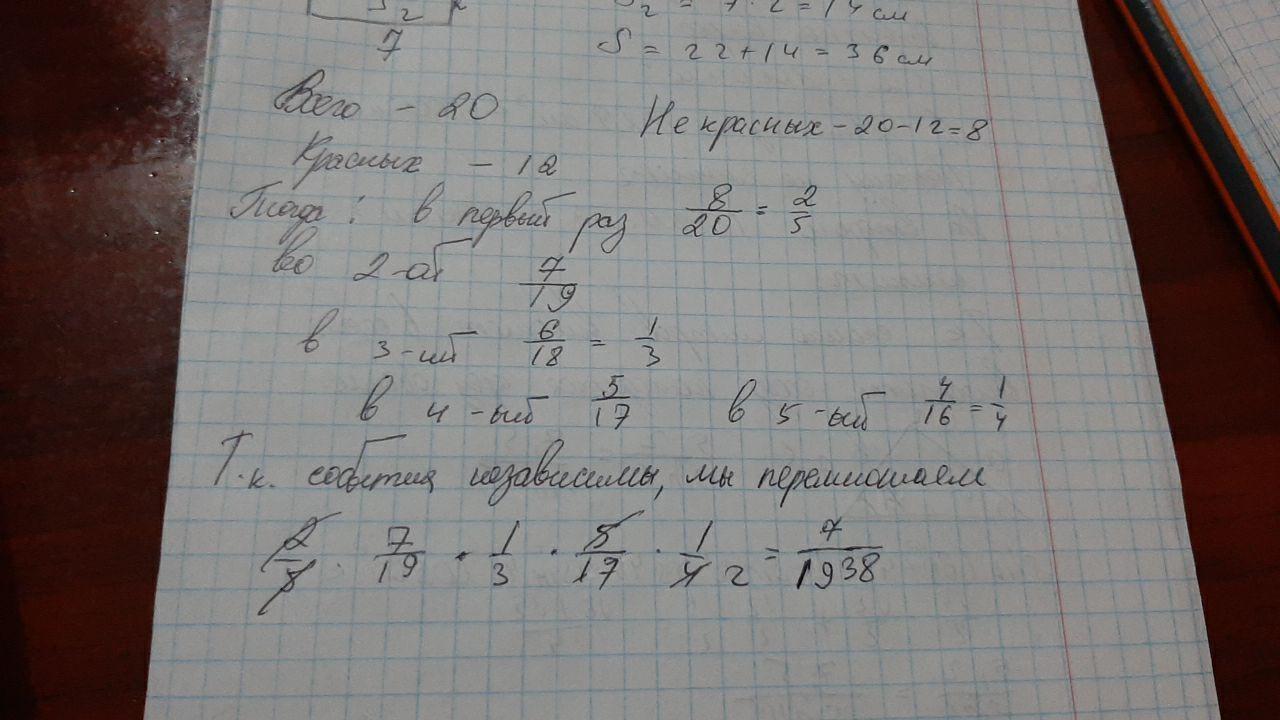 S₂ = 7 · 2 = 14 см
S₂
7
S = 22 + 14 = 36 см
Всего - 20
Не красных - 20 - 12 = 8
Красных - 12
Тогда: в первый раз 8/20 = 2/5
во 2-ой 7/19
в 3-ий 6/18 = 1/3
в 4-ый 5/17 в 5-ый 4/16 = 1/4
Т.к. события независимы, мы перемножаем
2/5 · 7/19 · 1/3 · 5/17 · 1/4 2 = 7/1938